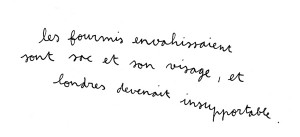 les fourmis envahissaient
sont sac et son visage, et
londres devenait insupportable.